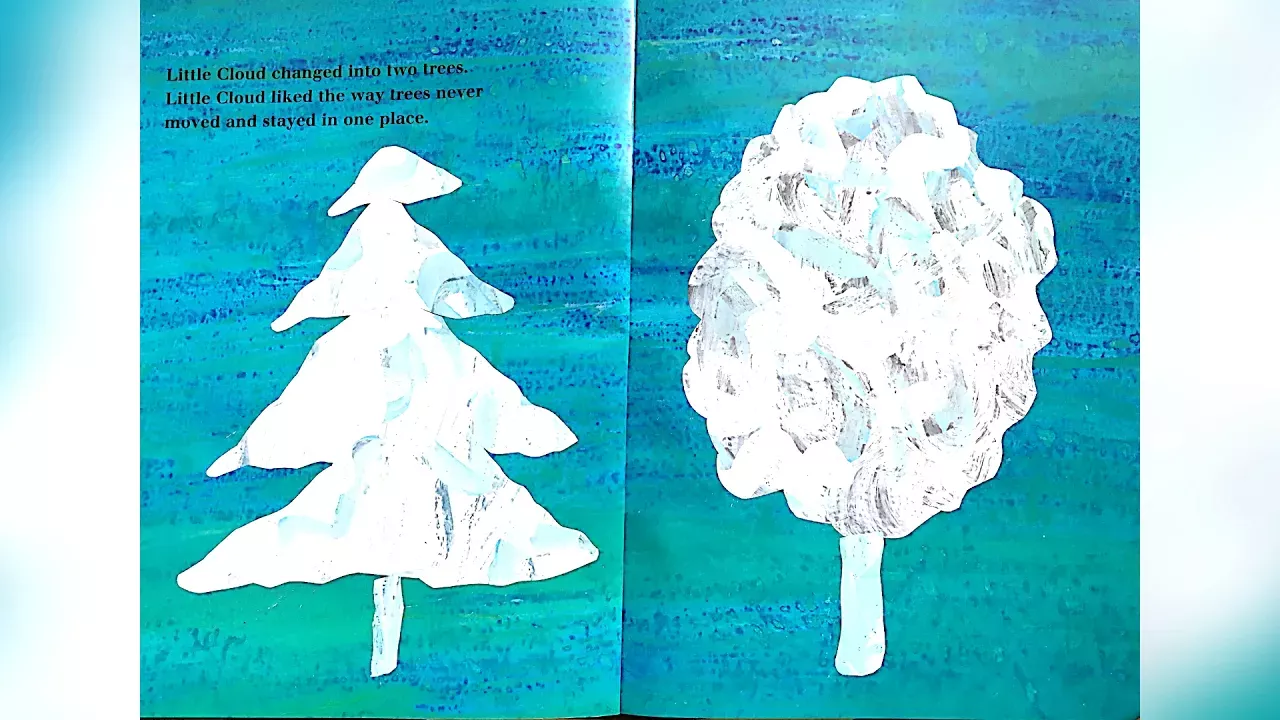 Little Cloud changed into two trees.
Little Cloud liked the way trees never
moved and stayed in one place.